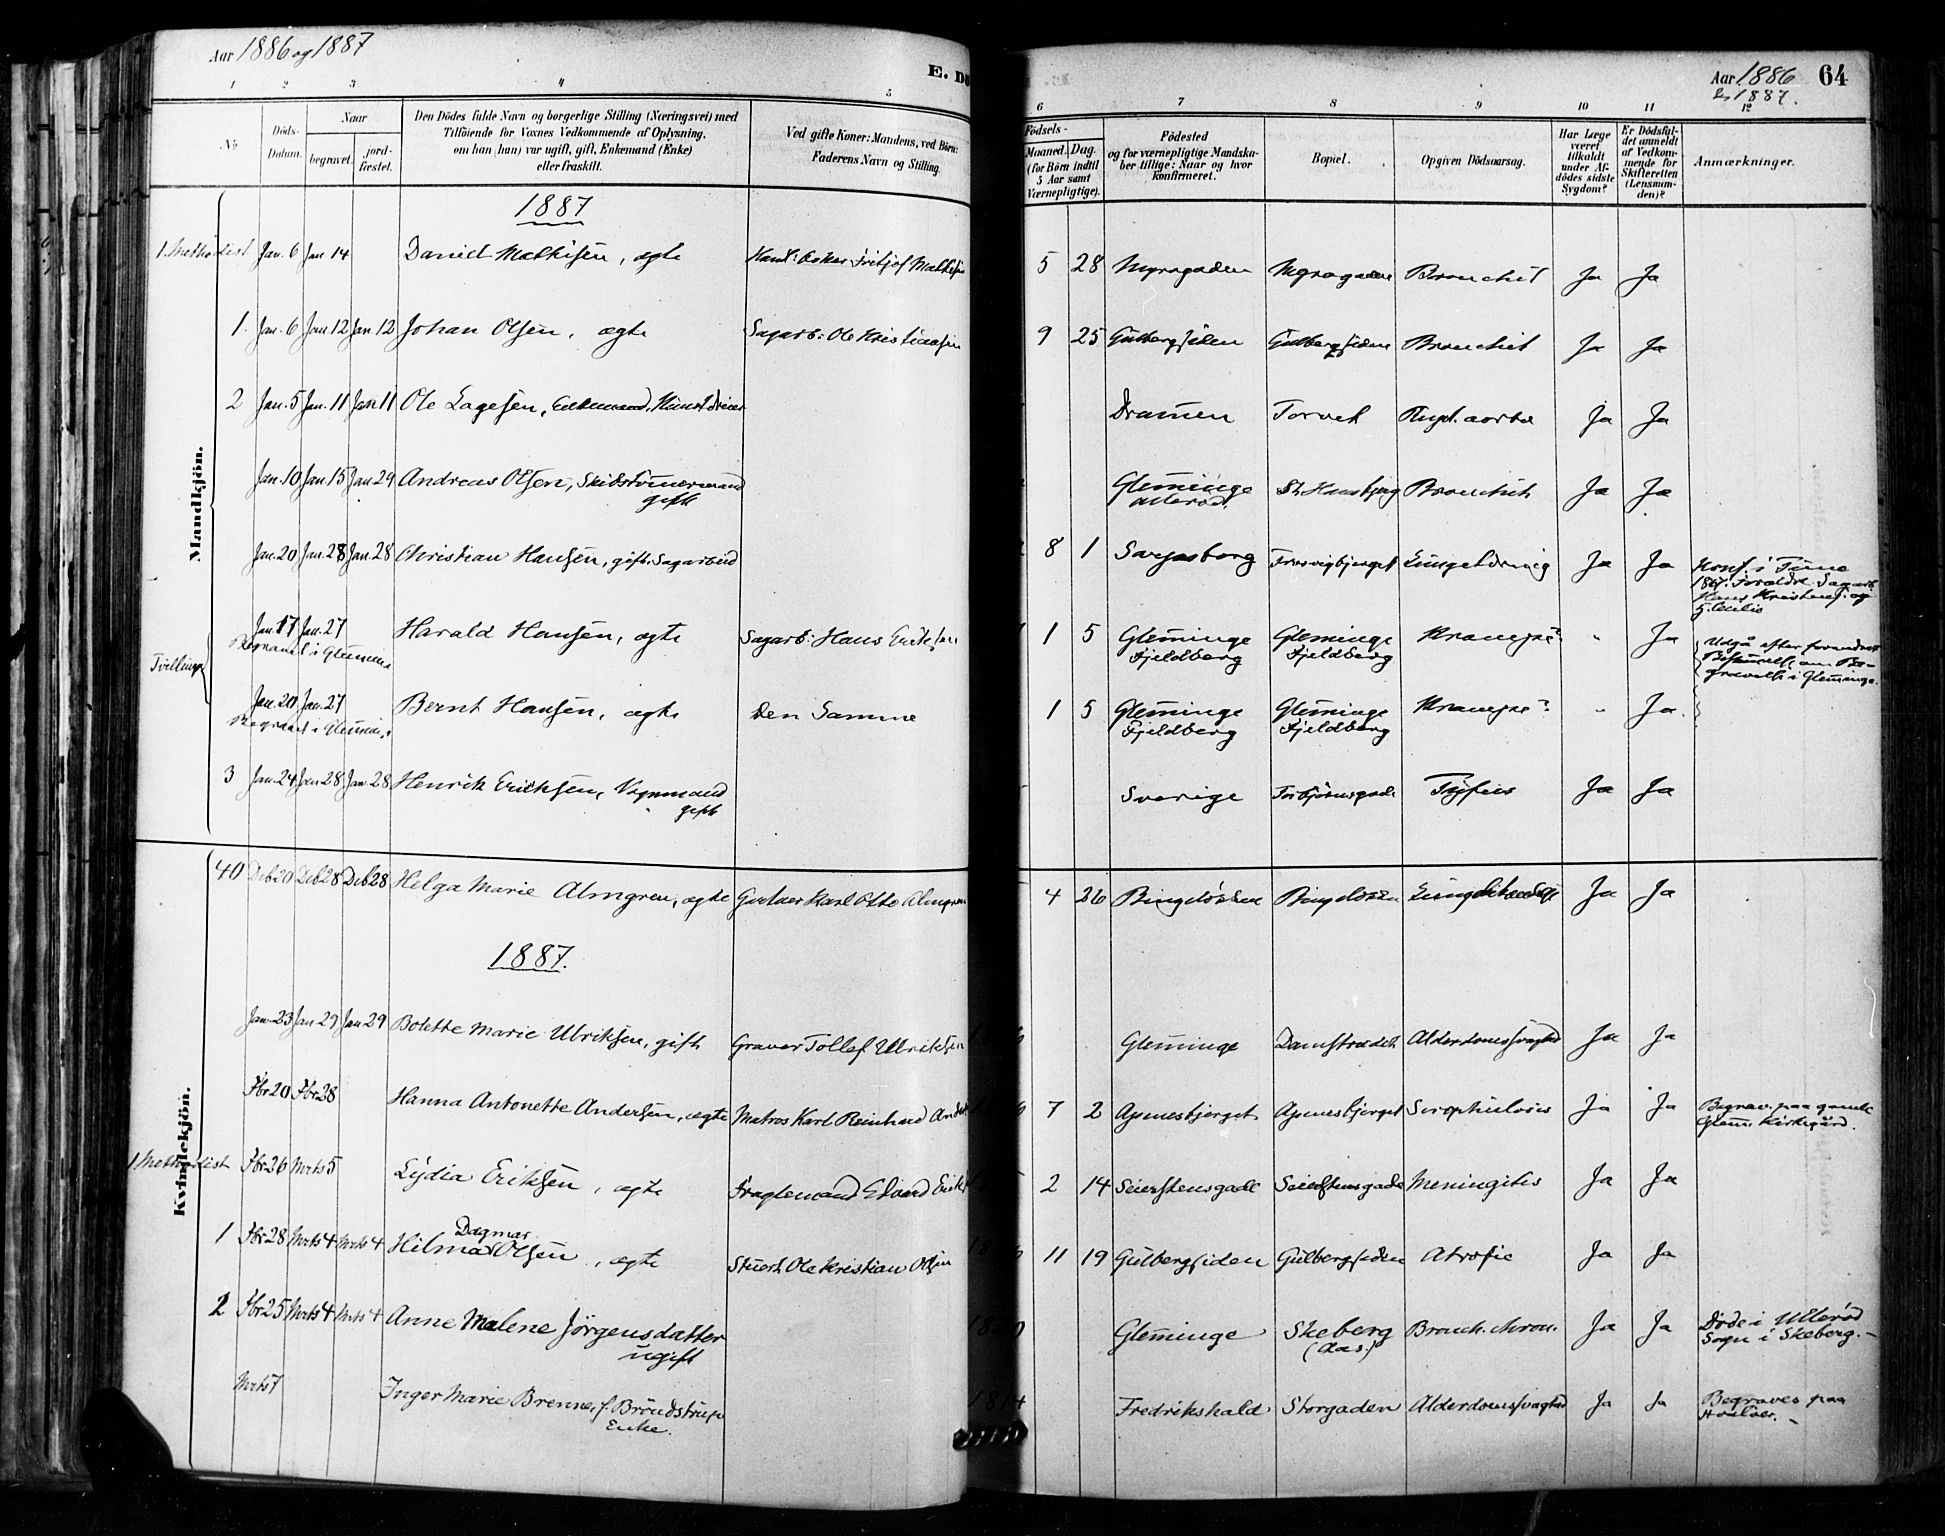 Aar 1886 og 1887
E. Dö
Aar 1886 64
og 1887.
1 2 3 4 5 6 7 8 9 10 11 12
No
Döds-Datum.
Naar
begravet.
jord-fæstet.
Den Dödes fulde Navn og borgerlige Stilling (Næringsvei) med
Tilföiende for Voxnes Vedkommende af Oplysning,
om han (hun) var ugift, gift, Enkemand (Enke)
eller fraskilt.
Ved gifte Koner: Mandens, ved Börn:
Faderens Navn og Stilling.
Födsels-
Maaned. Dag.
(for Börn indtil
5 Aar samt
Værnepligtige).
Födested
og for værnepligtige Mandska-
ber tillige: Naar og hvor
konfirmeret.
Bopæl.
Opgiven Dödsaarsag.
Har Læge
været
tilkaldt
under Af-
dödes sidste
Sygdom?
Er Dödsfal-
det anmeldt
af Vedkom-
mende for
Skifteretten
(Lensman-
den)?
Anmærkninger.
Mandkjön.
1887
1. Methodist Jan. 6 Jan 14 Daniel Mathisen, ægte Fritjof Mathisen 5 28 Myragaden Myragaden Bronchit Ja Ja
1. Jan. 6 Jan 12 Jan 12 Johan Olsen, ægte Sagarb: Ole Kristiansen 9 25 Gulbergsiden Gulbergsiden Bronchit Ja Ja
2 Jan. 5 Jan. 11 Jan 11 Ole Lagesen, Enkemand, Kunstdreier Drammen Torvet Rupt. aorta Ja Ja
Jan. 10 Jan 15 Jan 29 Andreas Olsen, Skibstömmermand Glemminge St. Hansbjerg Bronchit Ja Ja
gift
Jan. 20 Jan. 28 Jan. 28 Christian Hansen, gift, Sagarbeid 8 1 Sarpsborg Trosvigbjerget Ja Ja Konf. i Tune
Jan. 17 Jan. 27 Harald Hansen, ægte Sagarb: Hans Eriksen 1 5 Glemminge Glemminge Krampe? " Ja
Begravet i Glemminge Fjeldberg Fjeldberg
Tvillinge
Jan. 20 Jan. 27 Bernt Hansen, ægte Den Samme 1 5 Glemminge Glemminge Krampe? " Ja.
Begravet i Glemminge Fjeldberg Fjeldberg
3 Jan. 24 Jan 28 Jan. 28 Henrik Eriksen, Vognmand Sverige Torbjörnsgade Tyfus Ja Ja
gift
Kvindekjön.
40 Deb 20 Deb 28 Deb 28 Helga Marie Almgren, ægte Karl Otto Almgren 4 26 Ja Ja
1887.
Jan. 23 Jan 29 Jan 29 Bolette Marie Ulriksen, gift Graver Tollef Ulriksen Glemminge Damstrædet Alderdomssvaghed Ja Ja
Fbr 20 Fbr 28 Hanna Antonette Andersen, ægte Matros Karl Reinhard 7 2 Apenesbjerget Apenesbjerget Ja Ja Begrav. paa gamle
Glem. Kirkegård.
1 Methodist Fbr 26 Mrts 5 Lydia Eriksen, ægte Fragtemand Edvard 2 14 Seierstensgade Seierstensgade Meningitis Ja Ja
Dagmar
1 Fbr 28 Mrts 4 Mrts 4 Hilma Olsen, ægte Stuert Ole Kristian Olsen 11 19 Gulbergsiden Gulbergsiden Atrofie Ja Ja
2 Fbr 25 Mrts 4 Mrts 4 Anne Malene Jörgensdatter Glemminge Skeberg Bronch. chron. Ja Ja Döde i Ullerød
ugift (Aas.) Sogn i Skeberg.
Mrts 7 Inger Marie Brenne, f. Bröndstrup 1814 Fredrikshald Storgaden Alderdomssvaghed Ja Ja Begraves paa
Enke. Hvaler.